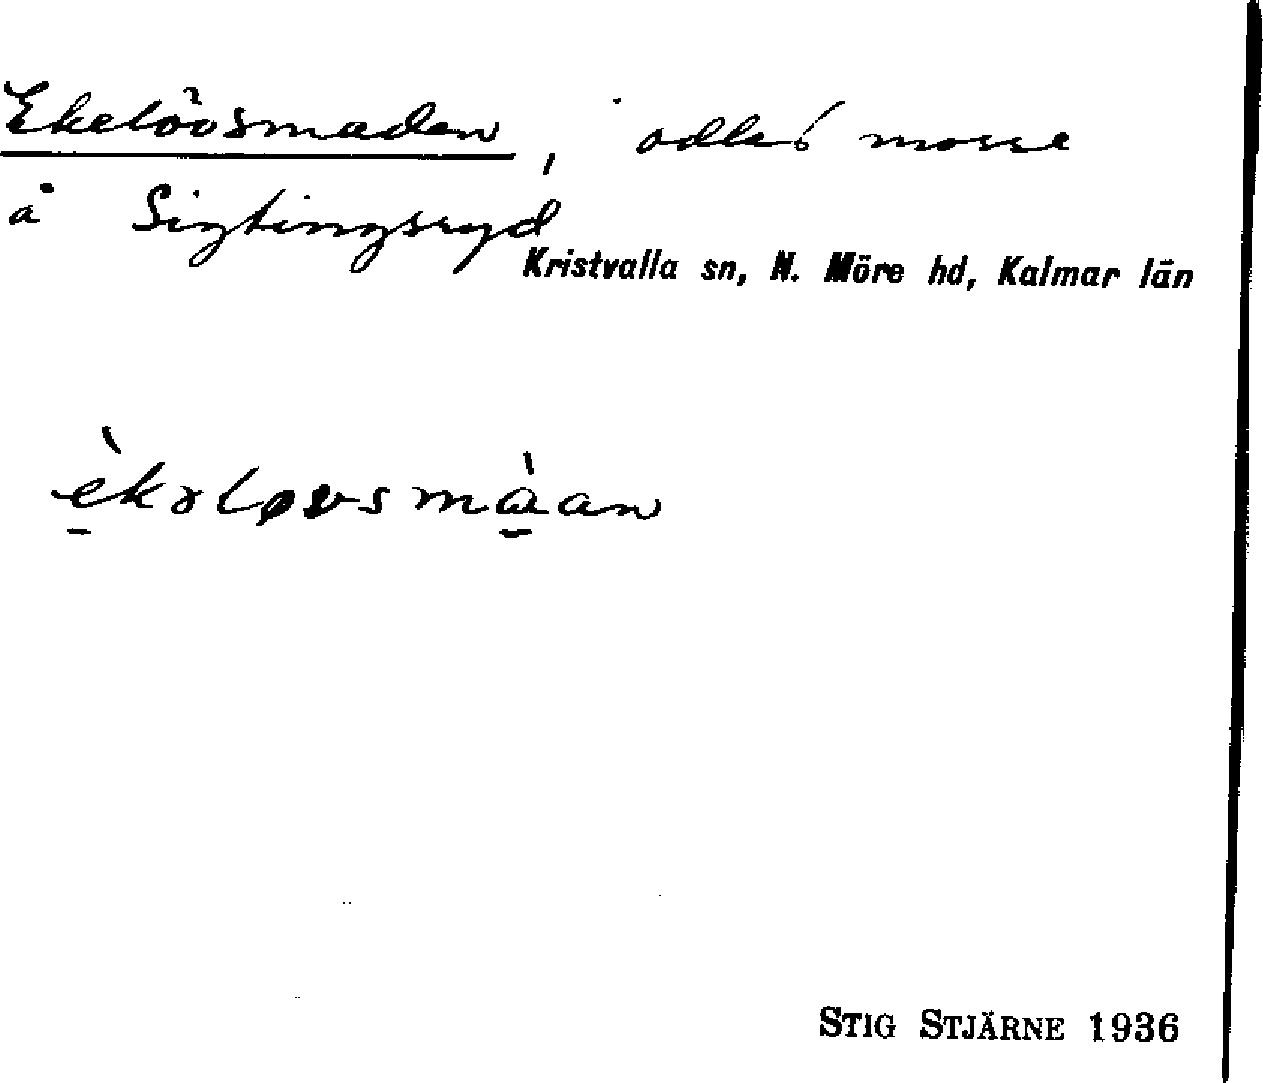 Ekelövsmaden, odlad mosse
å Sigtingsryd
Kristvalla sn, N. Möre hd, Kalmar län
èkəløvsmàan
STIG STJÄRNE 1936